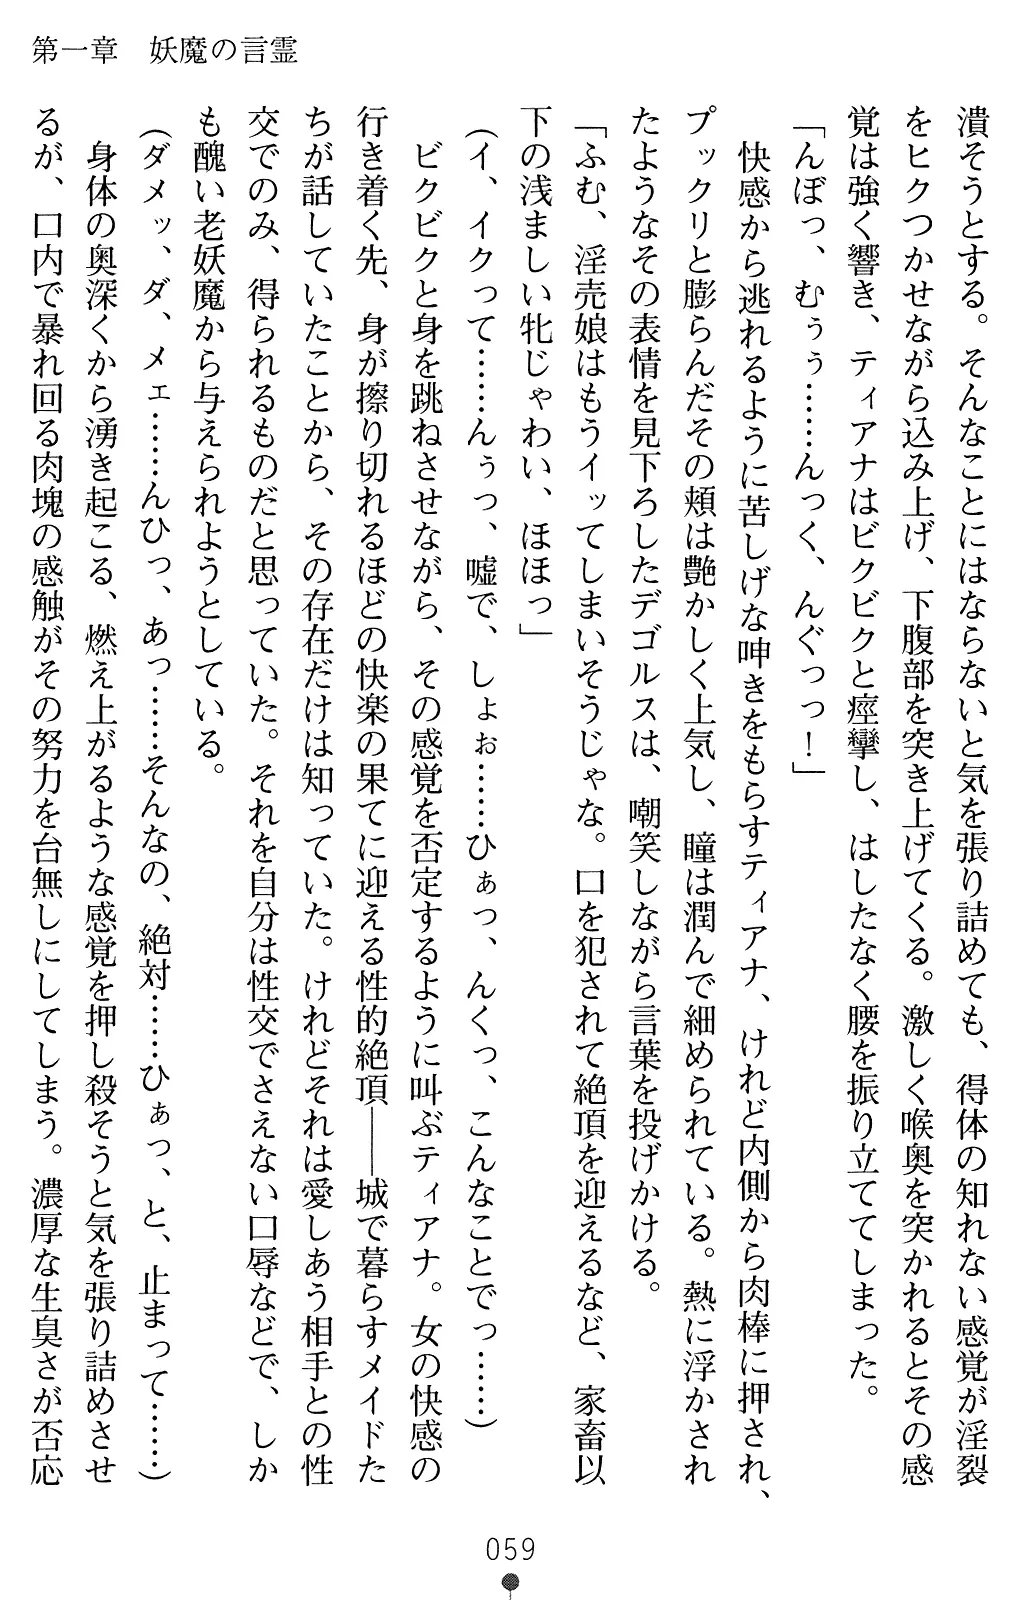 第一章　妖魔の言霊
潰そうとする。そんなことにはならないと気を張り詰めても、得体の知れない感覚が淫裂
をヒクつかせながら込み上げ、下腹部を突き上げてくる。激しく喉奥を突かれるとその感
覚は強く響き、ティアナはビクビクと痙攣し、はしたなく腰を振り立ててしまった。
「んぼっ、むぅぅ……んっく、んぐっっ！」
　快感から逃れるように苦しげな呻きをもらすティアナ、けれど内側から肉棒に押され、
プックリと膨らんだその頬は艶かしく上気し、瞳は潤んで細められている。熱に浮かされ
たようなその表情を見下ろしたデゴルスは、嘲笑しながら言葉を投げかける。
「ふむ、淫売娘はもうイッてしまいそうじゃな。口を犯されて絶頂を迎えるなど、家畜以
下の浅ましい牝じゃわい、ほほっ」
（イ、イクって……んぅっ、嘘で、しょぉ……ひぁっ、んくっ、こんなことでっ……）
　ビクビクと身を跳ねさせながら、その感覚を否定するように叫ぶティアナ。女の快感の
行き着く先、身が擦り切れるほどの快楽の果てに迎える性的絶頂――城で暮らすメイドた
ちが話していたことから、その存在だけは知っていた。けれどそれは愛しあう相手との性
交でのみ、得られるものだと思っていた。それを自分は性交でさえない口辱などで、しか
も醜い老妖魔から与えられようとしている。
（ダメッ、ダ、メェ……んひっ、あっ……そんなの、絶対……ひぁっ、と、止まって……）
　身体の奥深くから湧き起こる、燃え上がるような感覚を押し殺そうと気を張り詰めさせ
るが、口内で暴れ回る肉塊の感触がその努力を台無しにしてしまう。濃厚な生臭さが否応
059